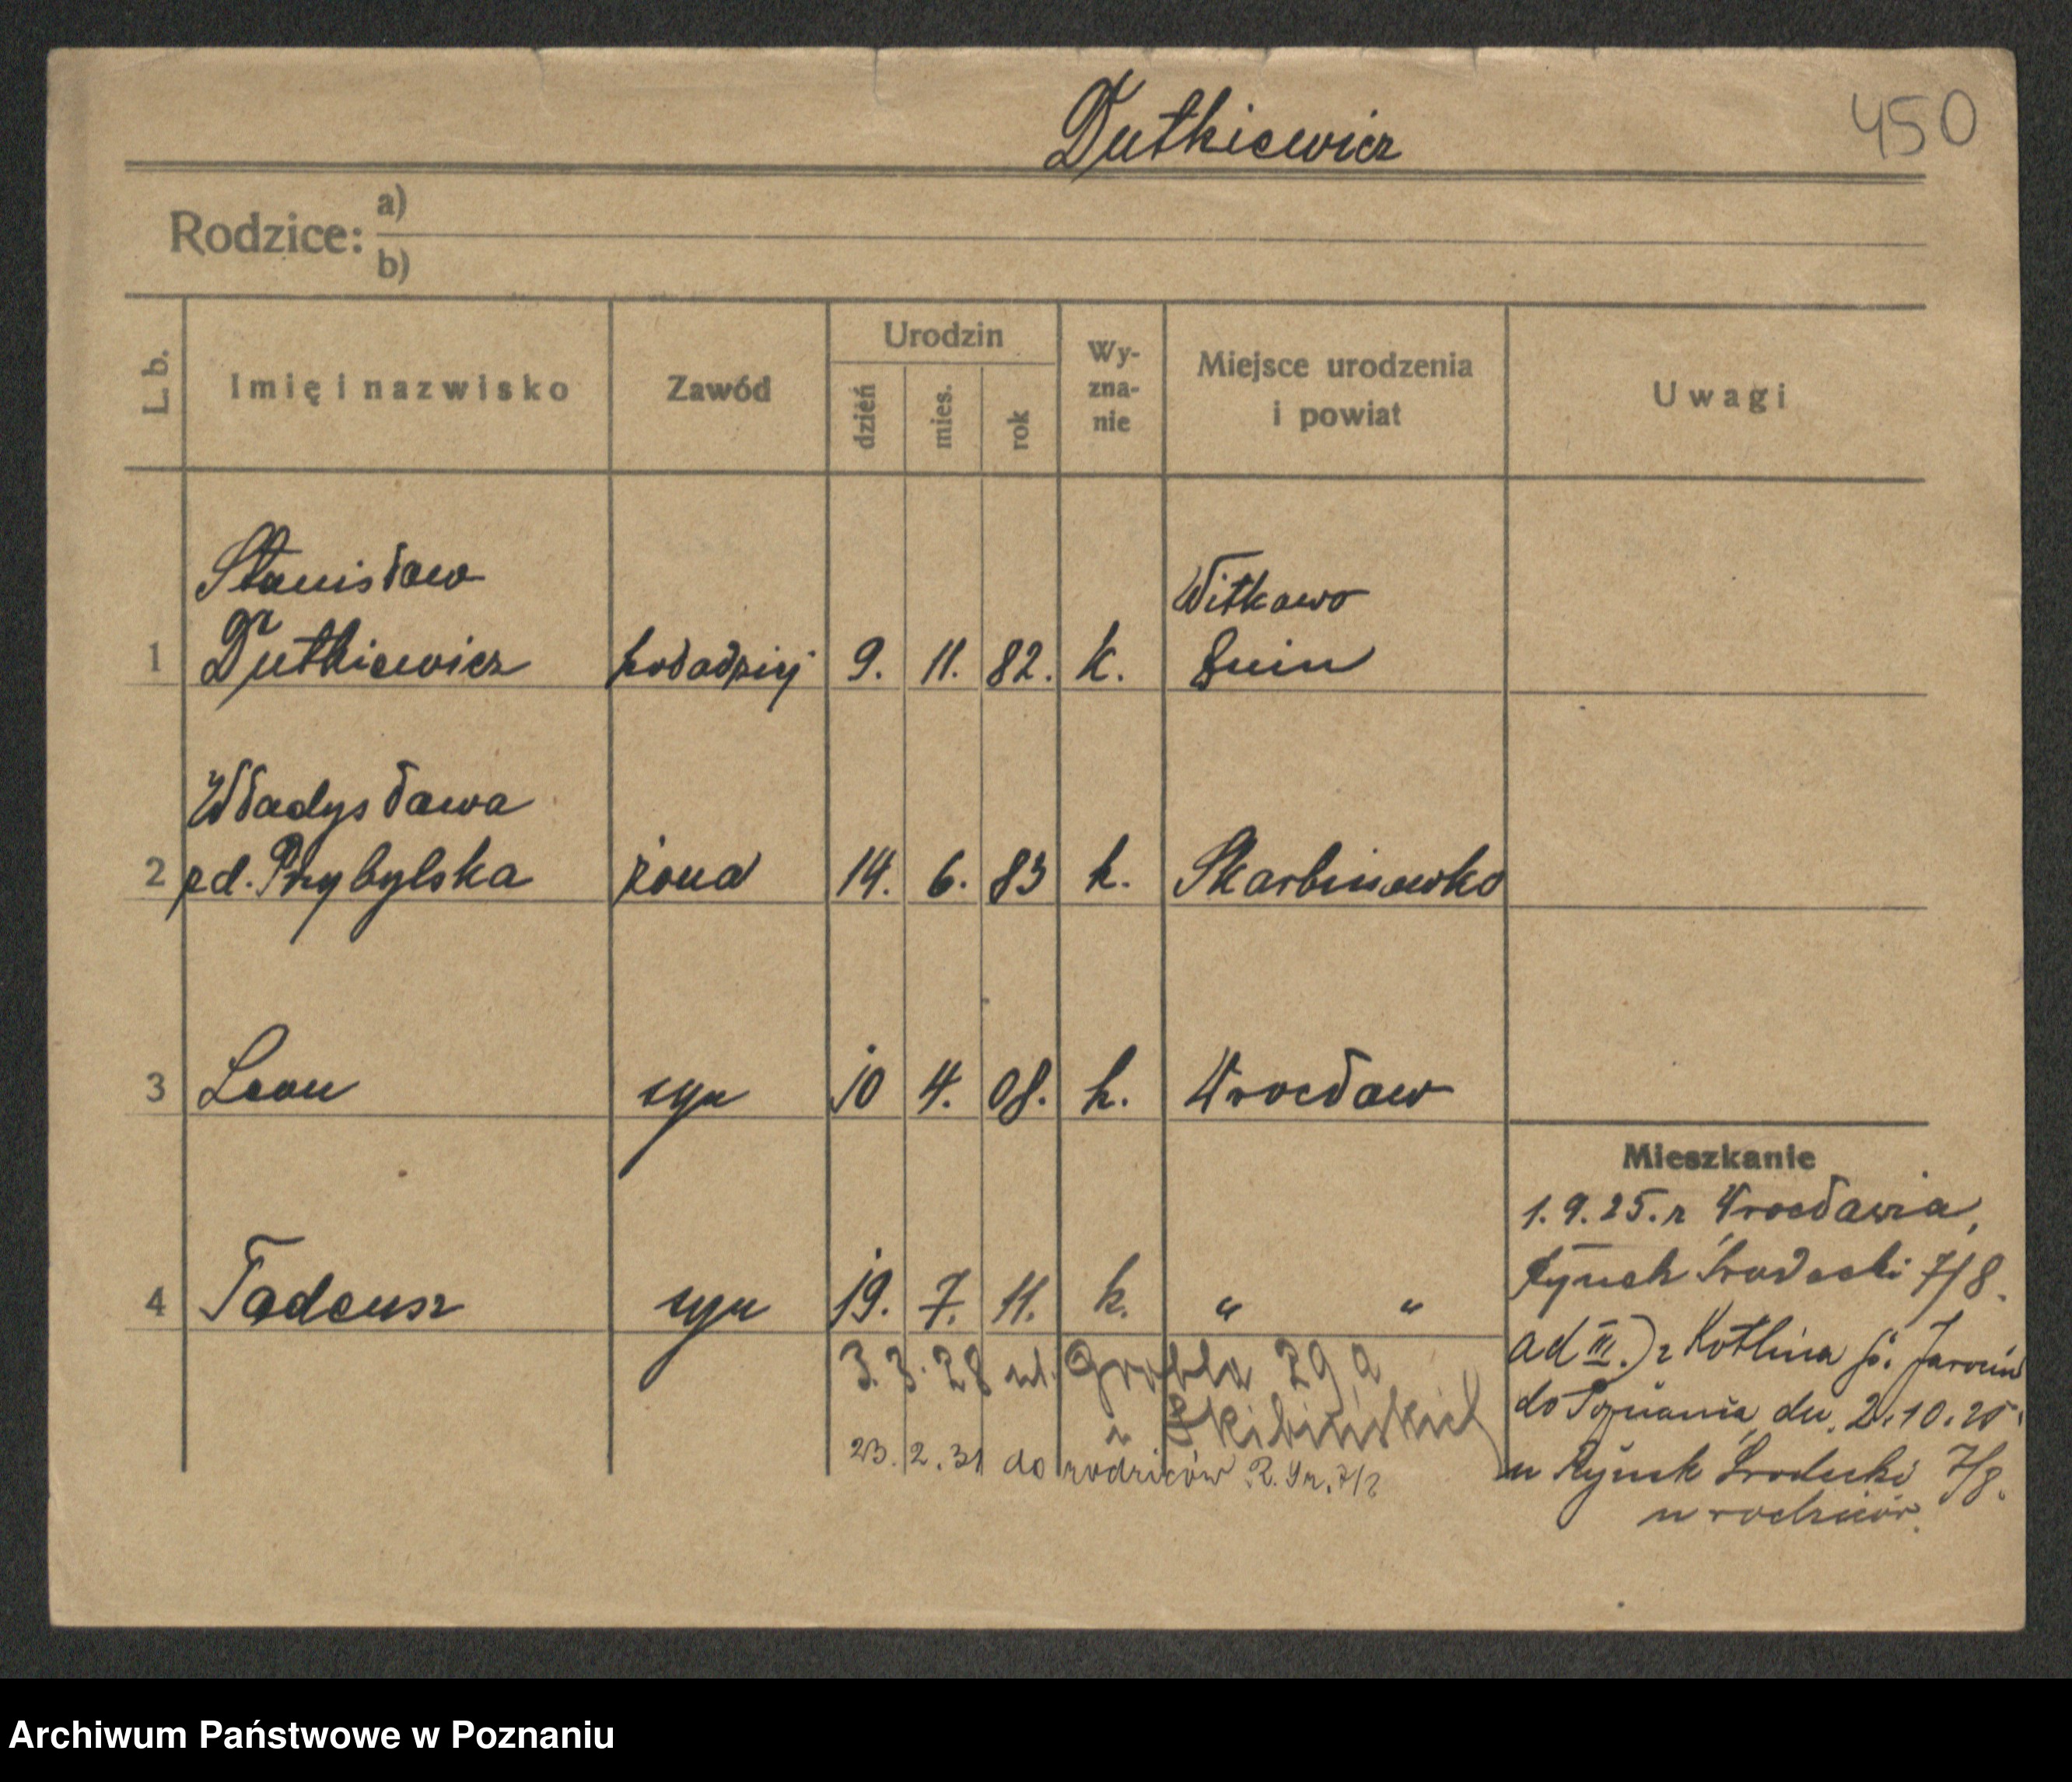 Dutkiewicz
450
Rodzice: a)
b)
L. b.
Imię i nazwisko
Zawód
Urodzin
dzień
mies.
rok
Wy-
zna-
nie
Miejsce urodzenia
i powiat
Uwagi
Stanisław
1 Dutkiewicz kołodziej 9. 11. 82. k. Witkowo
Żnin
Władysława
2 zd. Przybylska żona 14. 6. 83 k. Skarbinowko
3 Leon syn 10 4. 08. k. Wrocław
4 Tadeusz syn 19. 7. 11. k. " "
Mieszkanie
1. 9. 25. z Wrocławia,
Rynek Śródecki 7/8.
ad III.) z Kotlina p. Jarocin
do Poznania, dn. 2.10.25.
Rynek Śródecki 7/8.
u rodziców.
3. 3. 28 ul. Grobla 29a
u Skibińskich
23. 2. 31 do rodziców R. Śr. 7/8